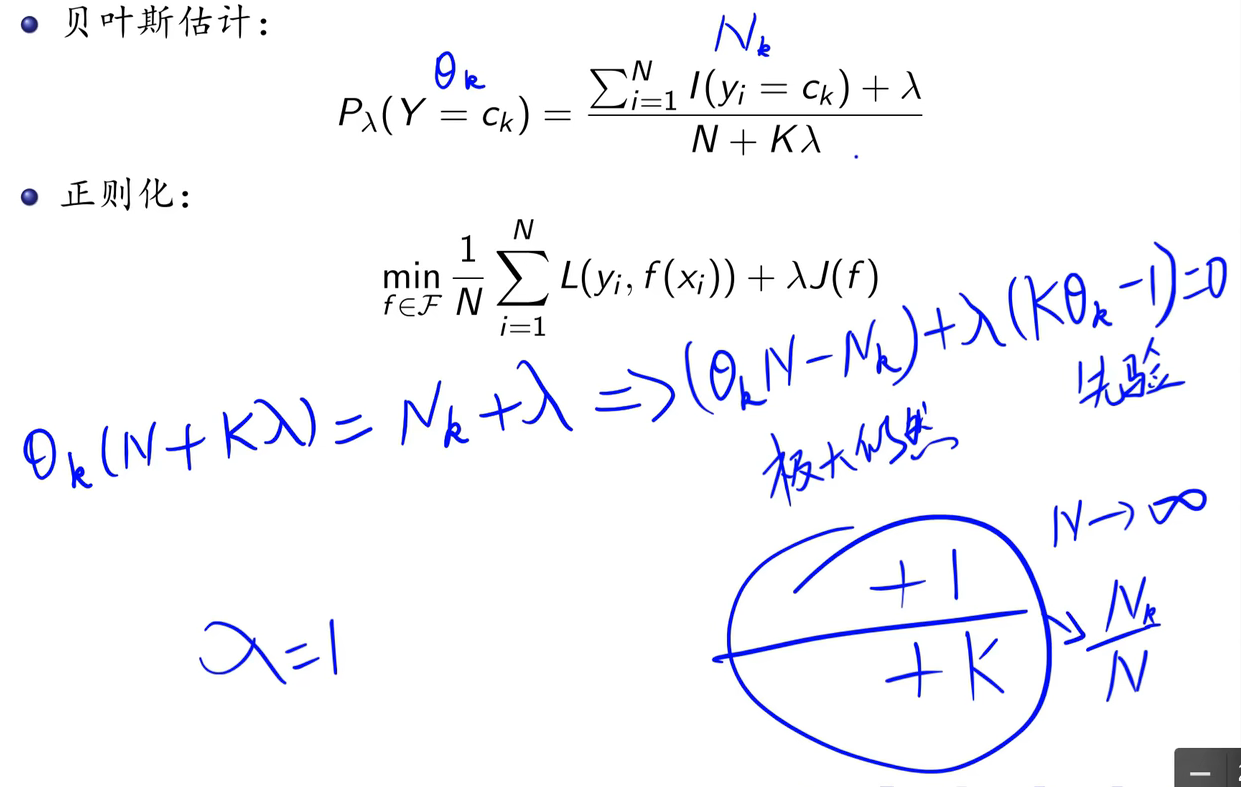 贝叶斯估计：
θ_k N_k
P_λ(Y = c_k) = \frac{\sum_{i=1}^{N} I(y_i = c_k) + λ}{N + Kλ}
正则化：
\min_{f∈\mathcal{F}} \frac{1}{N} \sum_{i=1}^{N} L(y_i, f(x_i)) + λJ(f)
θ_k(N+Kλ) = N_k+λ => (θ_k N - N_k) + λ(Kθ_k - 1) = 0
极大似然 先验
N→∞
\frac{+1}{+K} → \frac{N_k}{N}
λ=1